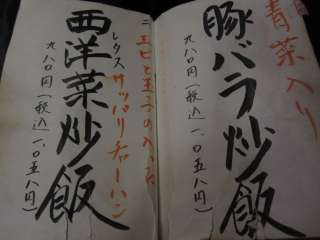 青菜入り
豚バラ炒飯
九八〇円(税込一、〇五八円)
二
エビと玉子の入った
レタス サッパリチャーハン
西洋菜炒飯
九八〇円(税込一、〇五八円)